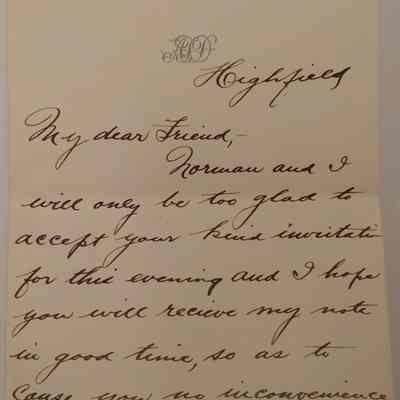 Highfield
My dear Friend,-
Norman and I
will only be too glad to
accept your kind invitati
for this evening and I hope
you will recieve my note
in good time, so as to
Cause you no inconvenience